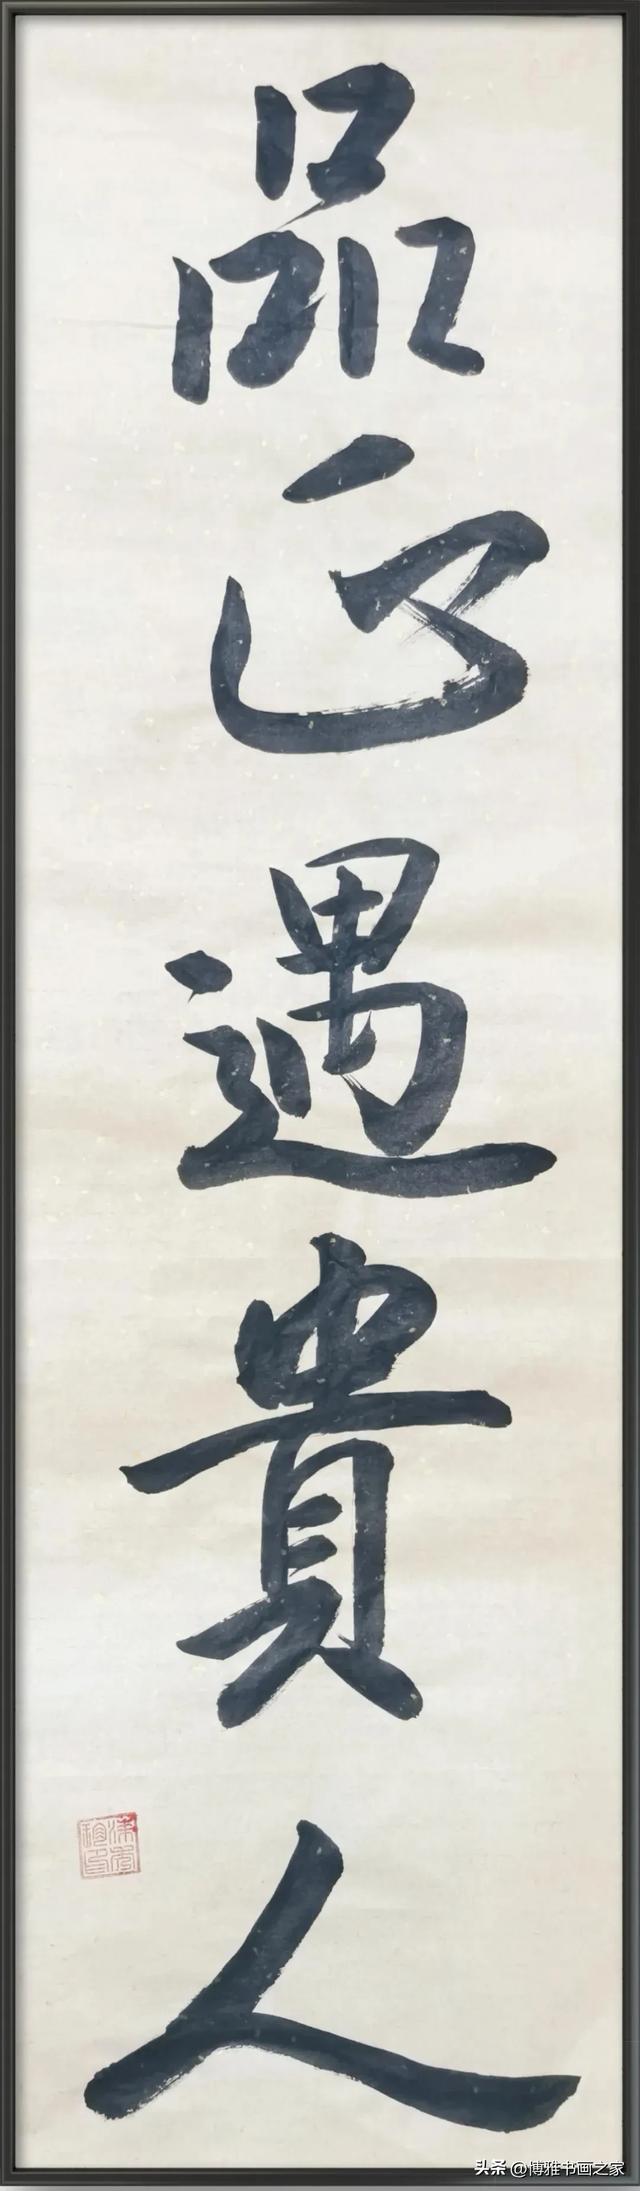 品正遇貴人
头条 @博雅书画之家